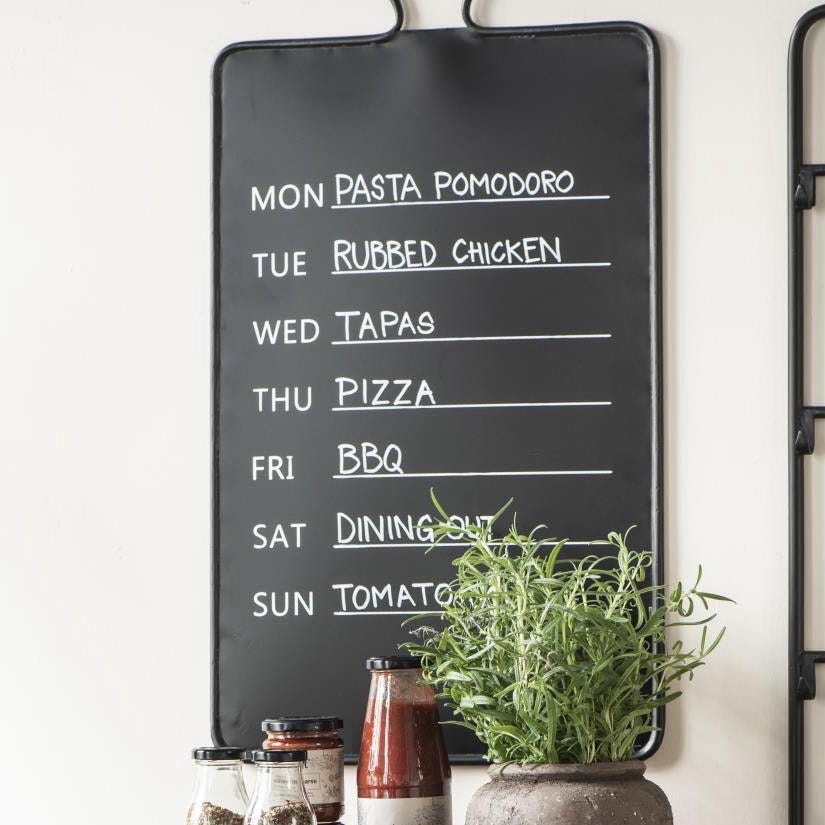 MON PASTA POMODORO
TUE RUBBED CHICKEN
WED TAPAS
THU PIZZA
FRI BBQ
SAT DINING OUT
SUN TOMATO